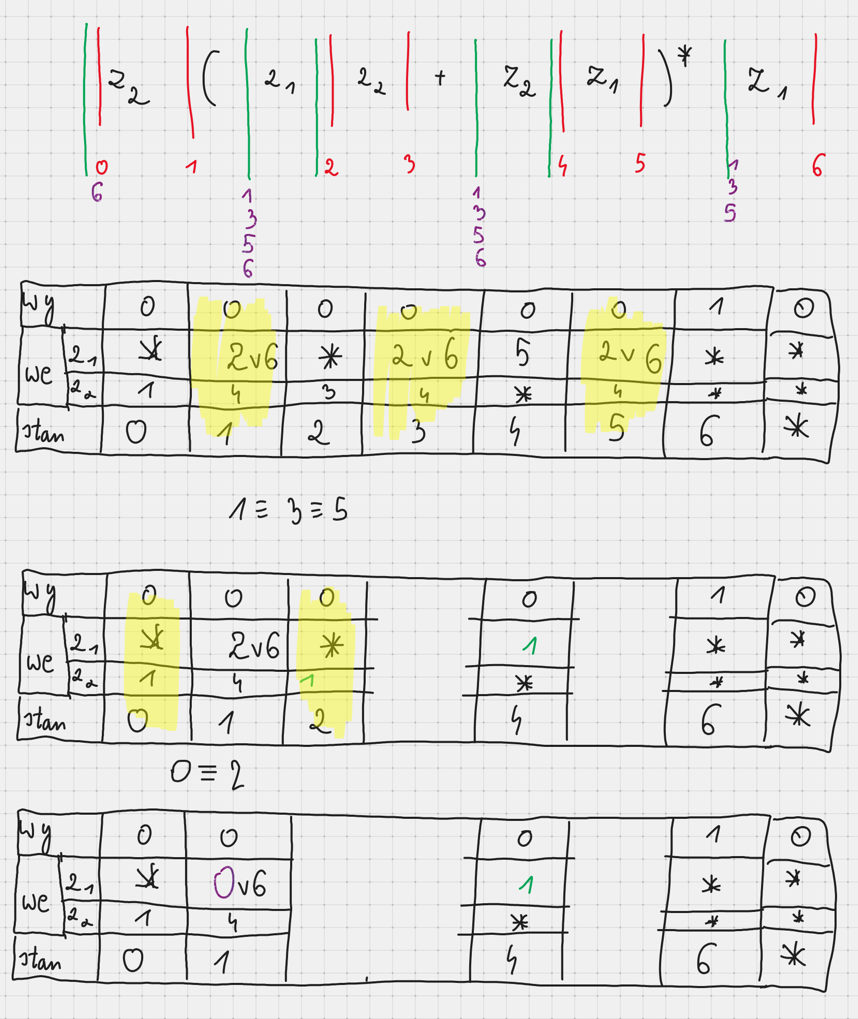 Z₂ ( z₁ z₂ + Z₂ Z₁ )* Z₁
0 1 2 3 4 5 1 6
6 1 1 3
3 3 5
5 5
6 6
wy 0 0 0 0 0 0 1 0
we z₁ * 2v6 * 2v6 5 2v6 * *
z₂ 1 4 3 4 * 4 * *
stan 0 1 2 3 4 5 6 *
1 ≡ 3 ≡ 5
wy 0 0 0 0 1 0
we z₁ * 2v6 * 1 * *
z₂ 1 4 1 * * *
stan 0 1 2 4 6 *
0 ≡ 2
wy 0 0 0 1 0
we z₁ * 0v6 1 * *
z₂ 1 4 * * *
stan 0 1 4 6 *